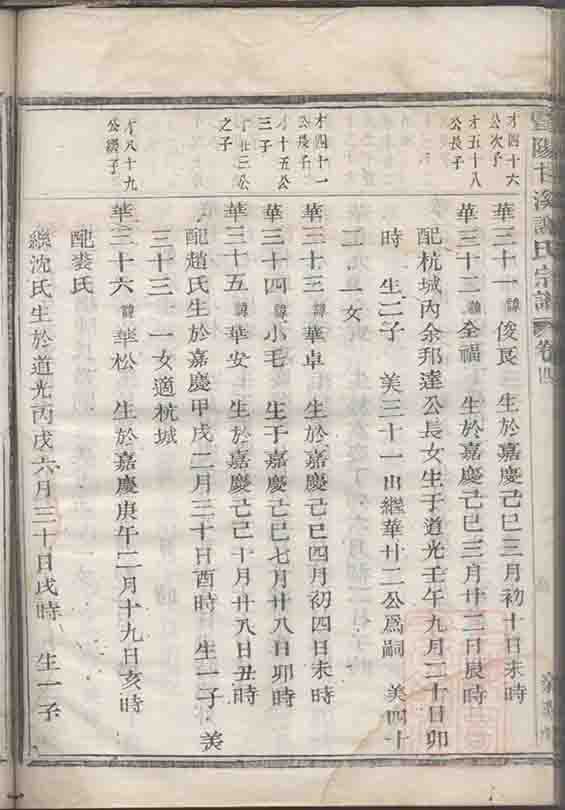 暨陽 溪 氏宗譜 卷四
才四十六
公次子
華三十一 諱 俊良 生於嘉慶己巳三月初十日未時
才五十八
公長子
華三十二 諱 全福 生於嘉慶己巳三月廿二日辰時
配杭城內余邦達公長女生于道光壬午九月二十日卯
時 生二子 美三十一出繼華廿二公爲嗣 美四十
二 一女
才四十一
公長子
華三十三 諱 華卓 生於嘉慶己巳四月初四日未時
才十五公
三子
華三十四 諱 小毛 生于嘉慶己巳七月廿八日卯時
之子
華三十五 諱 華安 生於嘉慶己巳十月廿八日丑時
配趙氏生於嘉慶甲戌二月三十日酉時 生一子 美
三十三 一女適杭城
才八十九
公繼子
華三十六 諱 華松 生於嘉慶庚午二月十九日亥時
配裘氏
繼沈氏生於道光丙戌六月三十日戌時 生一子